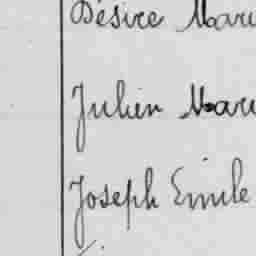 Désiré Mari
Julien Mari
Joseph Emile